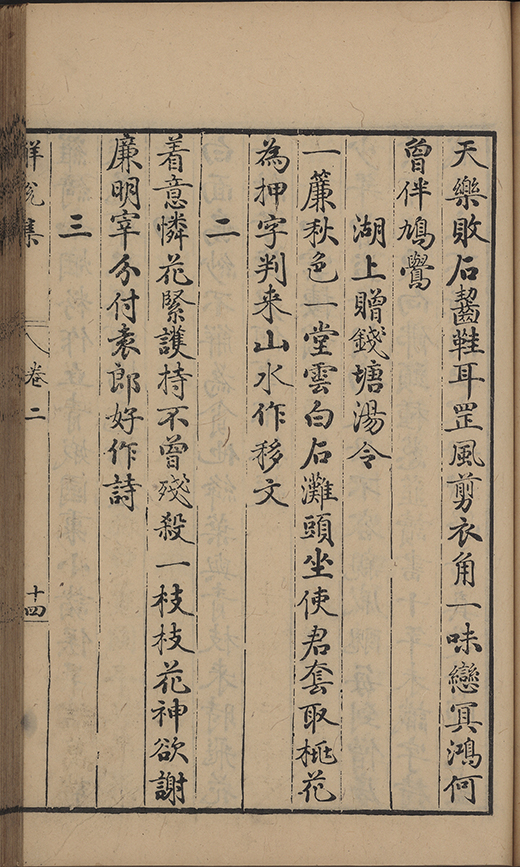 天樂敗石齧鞋耳罡風剪衣角一味戀冥鴻何
曾伴鳩鷽
湖上贈錢塘湯令
一簾秋色一堂雲白石灘頭坐使君套取桃花
為押字判来山水作移文
二
着意憐花緊護持不曾殘殺一枝枝花神欲謝
廉明宰分付袁郎好作詩
三
集 卷二 十四